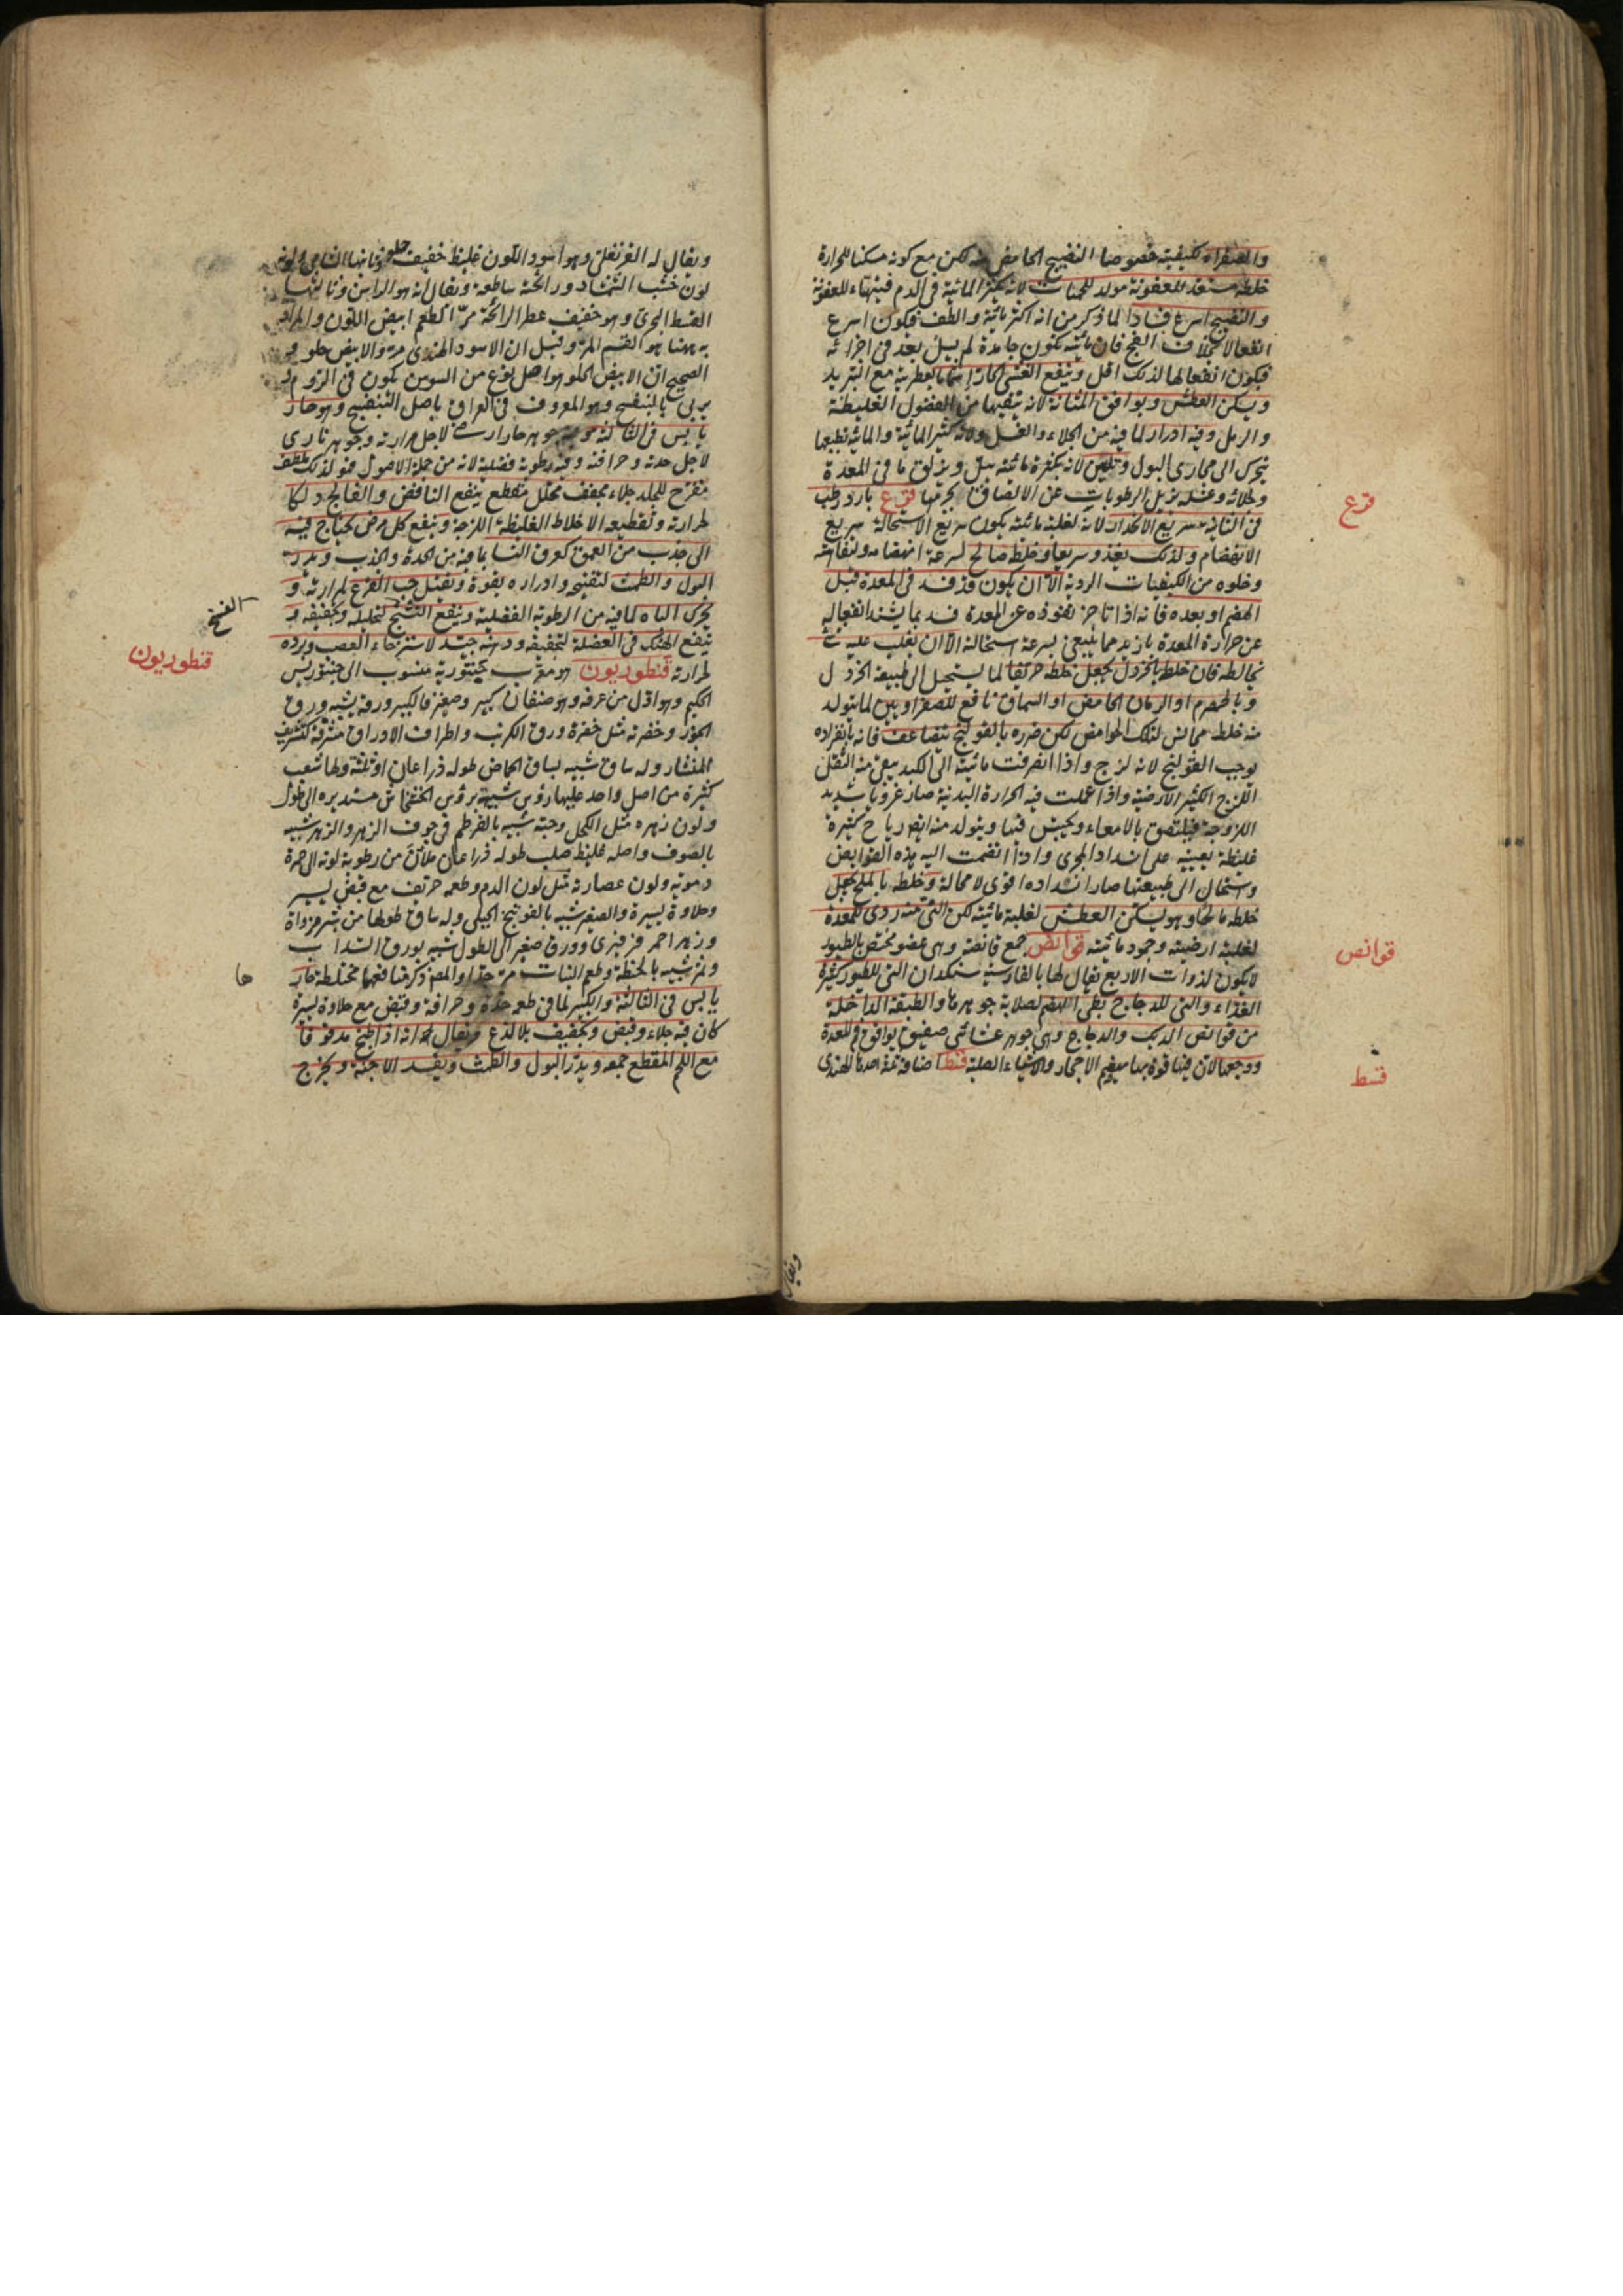 والصفراء بكيفيته خصوصا النضيج الحامض منه لكن مع كونه مسكنا للحرارة
خلطه مستعد للعفونة مولد للحميات لانه يكثر المائية في الدم فيتهيأ للعفونة
والنضيج اسرع فسادا لما ذكر من انه اكثر مائية والطف فيكون اسرع
انفعالا بخلاف الفج فان مائيته تكون جامدة لم يبل بعد في اجزائه
فيكون انفعالها لذلك اقل وينفع الغشي الحار بالعطرية مع التبريد
ويسكن العطش ويوافق المثانة لانه ينقيها من الفضول الغليظة
والرمل وفيه ادرار لما فيه من الجلاء والغسل ولانه كثير المائية والمائية بطبعها
تتحرك الى مجارى البول وتليين لانه بكثرة مائيته يبل ويزلق ما في المعدة
وبجلائه وغسله يزيل الرطوبات عن الالتصاق بجرمها قرع بارد رطب
في الثانية سريع الانحدار لانه لغلبة مائيته يكون سريع الاستحالة سريع
الانهضام ولذلك يغذو سريعا وخلطه صالح لسرعة انهضامه ولتفاهته
وخلوه من الكيفيات الردية الا ان يكون قد فسد في المعدة قبل
الهضم او بعده فانه اذا تاخر نفوذه عن المعدة فسد بما يشتد انفعاله
عن حرارة المعدة بازيد مما ينبغي بسرعة استحالته الا ان يغلب عليه شئ
يخالطه فان خلط بالخردل يجعل خلطه حريفا لما يستحيل الى طبيعة الخردل
وبالحصرم او الرمان الحامض او السماق نافع للصفراويين لما يتولد
منه خلط مجانس لتلك الحوامض لكن ضرره بالقولنج يتضاعف فانه بانفراده
يوجب القولنج لانه لزج واذا انصرفت مائيته الى الكبد يبقى منه الثقل
اللزج الكثير الارضية واذا عملت فيه الحرارة البدنية صار غرويا شديد
اللزوجة فيلتصق بالامعاء ويحبس فيها ويتولد منه ايضا رياح كثيرة
غليظة يعينه على انسداد المجرى واذا انضمت اليه هذه القوابض
واستحال الى طبيعتها صار انسداده اقوى لا محالة وخلطه بالملح يجعل
خلطه مالحا وهو يسكن العطش لغلبة مائيته لكن النئ منه ردى للمعدة
لغلبة ارضيته وجود مائيته قوانص جمع قانصة وهي عضو مختص بالطيور
لا يكون لذوات الاربع يقال لها بالفارسية سنكدان التي للطيور كثيرة
الغذاء والتي للدجاج بطى الهضم لصلابة جوهرها والطبقة الداخلة
من قوانص الديك والدجاج وهي جوهر غشائي صفيق يوافق فم المعدة
ووجعها لان فيها قوة بها يهضم الاحجار والاشياء الصلبة قسط اصنافه ثلثة احدها الهندى
قرع
قوانص
قسط
ويقال
ويقال له القرنفلى وهو اسود اللون غليظ خفيف حلو وثانيها الشامى ولونه
لون خشب الشمشاد ورائحته ساطعة ويقال انه هو الراسن وثالثها
القسط البحرى وهو خفيف عطر الرائحة مر الطعم ابيض اللون والمراد
به ههنا هو القسم المر وقيل ان الاسود الهندى مر والابيض حلو و
الصحيح ان الابيض الحلو هو اصل نوع من السوسن يكون في الروم
يربى بالبنفسج وهو المعروف في العراق باصل البنفسج وهو حار
يابس في الثالثة جوهر حار ارضى لاجل مرارته وجوهر نارى
لاجل حدته وحرافته وفيه رطوبة فضلية لانه من جملة الاصول فهو لذلك ملطف
مقرح للجلد جلاء مجفف محلل مقطع ينفع النافض والفالج دلكا
لحرارته وتقطيعه الاخلاط الغليظة اللزجة وينفع كل مرض يحتاج فيه
الى جذب من العمق كعرق النسا بما فيه من الحدة والجذب ويدر
البول والطمث لتفتيحه وادراره بقوة ويقتل حب القرع لمرارته و
يحرك الباه لما فيه من الرطوبة الفضلية وينفع التشنج لتحليله وتجفيفه و
ينفع الهتك في العضلة لتجفيفه ودهنه جيد لاسترخاء العصب وبرده
لحرارته قنطوريون هو معرب منسوب الى
الحكيم وهو اول من عرفه وهو صنفان كبير وصغير فالكبير ورقه يشبه ورق
الجوز وخضرته مثل خضرة ورق الكرنب واطراف الاوراق مشرفة كتشريف
المنشار وله ساق شبيه بساق الحماض طوله ذراعان او ثلثة ولها شعب
كثيرة من اصل واحد عليها رؤس شبيهة برؤس الخشخاش مستديرة الى طول
ولون زهره مثل الكحل وحبه شبيه بالقرطم في جوف الزهر والزهر شبيه
بالصوف واصله غليظ صلب طوله ذراعان ملآن من رطوبة لونه الى حمرة
دموية ولون عصارته مثل لون الدم وطعمه حريف مع قبض يسير
وحلاوة يسيرة والصغير شبيه بالفوتنج الجبلى وله ساق طولها من شبر مزواة
وزهر احمر فرفيرى وورق صغير الى الطول شبيه بورق السداب
وثمر شبيه بالحنطة وطعم النبات مر جدا والمص ذكر منافعها مختلطة حار
يابس في الثالثة والكبير لما في طعمه حدة وحرافة وقبض مع حلاوة يسيرة
كان فيه جلاء وقبض وتجفيف بلا لذع ويقال انه اذا طبخ مدقوقا
مع اللحم المقطع جمعه ويدر البول والطمث ويفسد الاجنة ويخرج
قنطوريون
ها